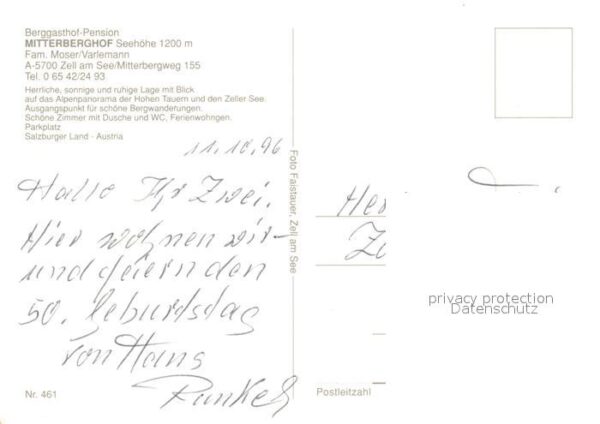 Berggasthof-Pension
MITTERBERGHOF Seehöhe 1200 m
Fam. Moser/Varlemann
A-5700 Zell am See/Mitterbergweg 155
Tel. 0 65 42/24 93
Herrliche, sonnige und ruhige Lage mit Blick
auf das Alpenpanorama der Hohen Tauern und den Zeller See.
Ausgangspunkt für schöne Bergwanderungen.
Schöne Zimmer mit Dusche und WC, Ferienwohngen.
Parkplatz
Salzburger Land - Austria
11.10.96
Hallo Ihr Zwei.
Hier wohnen wir
und feiern den
50. Geburtstag
von Hans
Runkel
Nr. 461
Foto Faistauer, Zell am See
Postleitzahl
privacy protection
Datenschutz